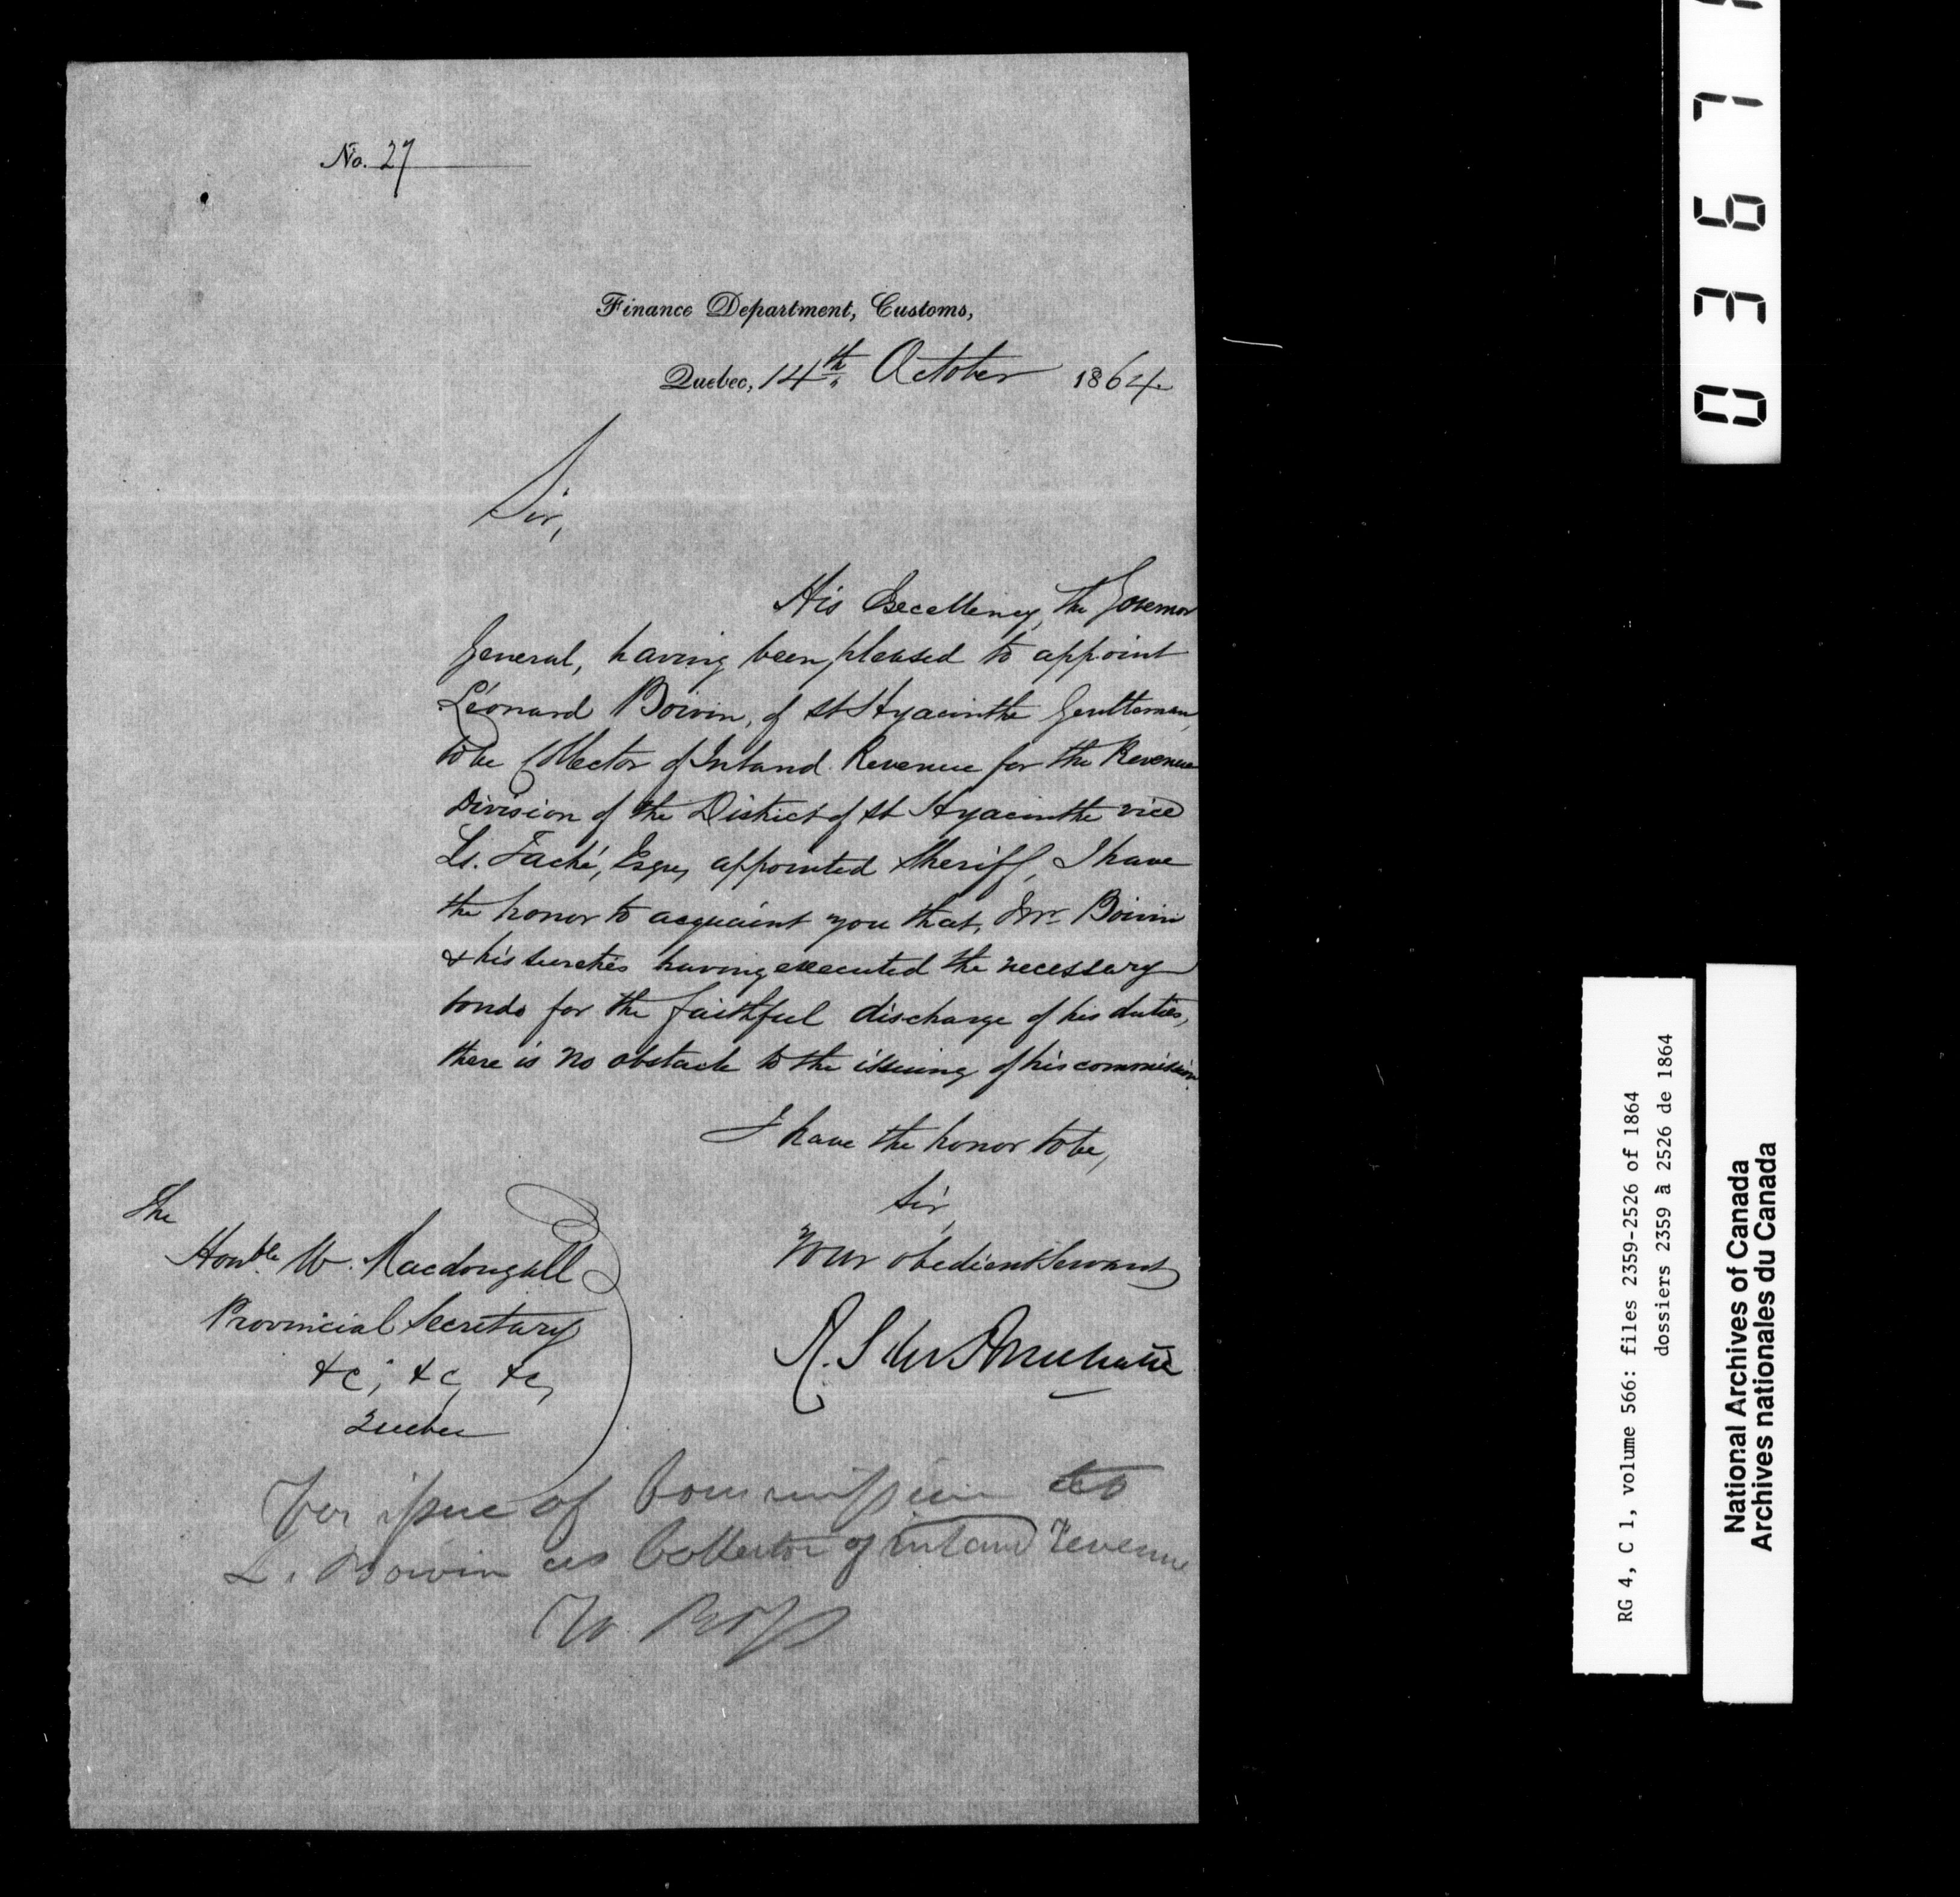 No. 27
Finance Department, Customs,
Quebec, 14th October 1864.
Sir,
His Excellency, the Governor
General, having been pleased to appoint
Léonard Boivin, of St Hyacinthe Gentleman,
to be Collector of Inland Revenue for the Revenue
Division of the District of St Hyacinthe vice
Ls. Taché, Esqre, appointed Sheriff, I have
the honor to acquaint you that, Mr. Boivin
& his sureties having executed the necessary
bonds for the faithful discharge of his duties,
there is no obstacle to the issuing of his commission.
I have the honor to be,
Sir,
Your obedient Servant
R. S. M. Bouchette
The
Honble. W. Macdougall
Provincial Secretary
&c, &c, &c,
Quebec
For issue of Commission to
L. Boivin as Collector of inland revenue
0367
RG 4, C 1, volume 566: files 2359-2526 of 1864
dossiers 2359 à 2526 de 1864
National Archives of Canada
Archives nationales du Canada